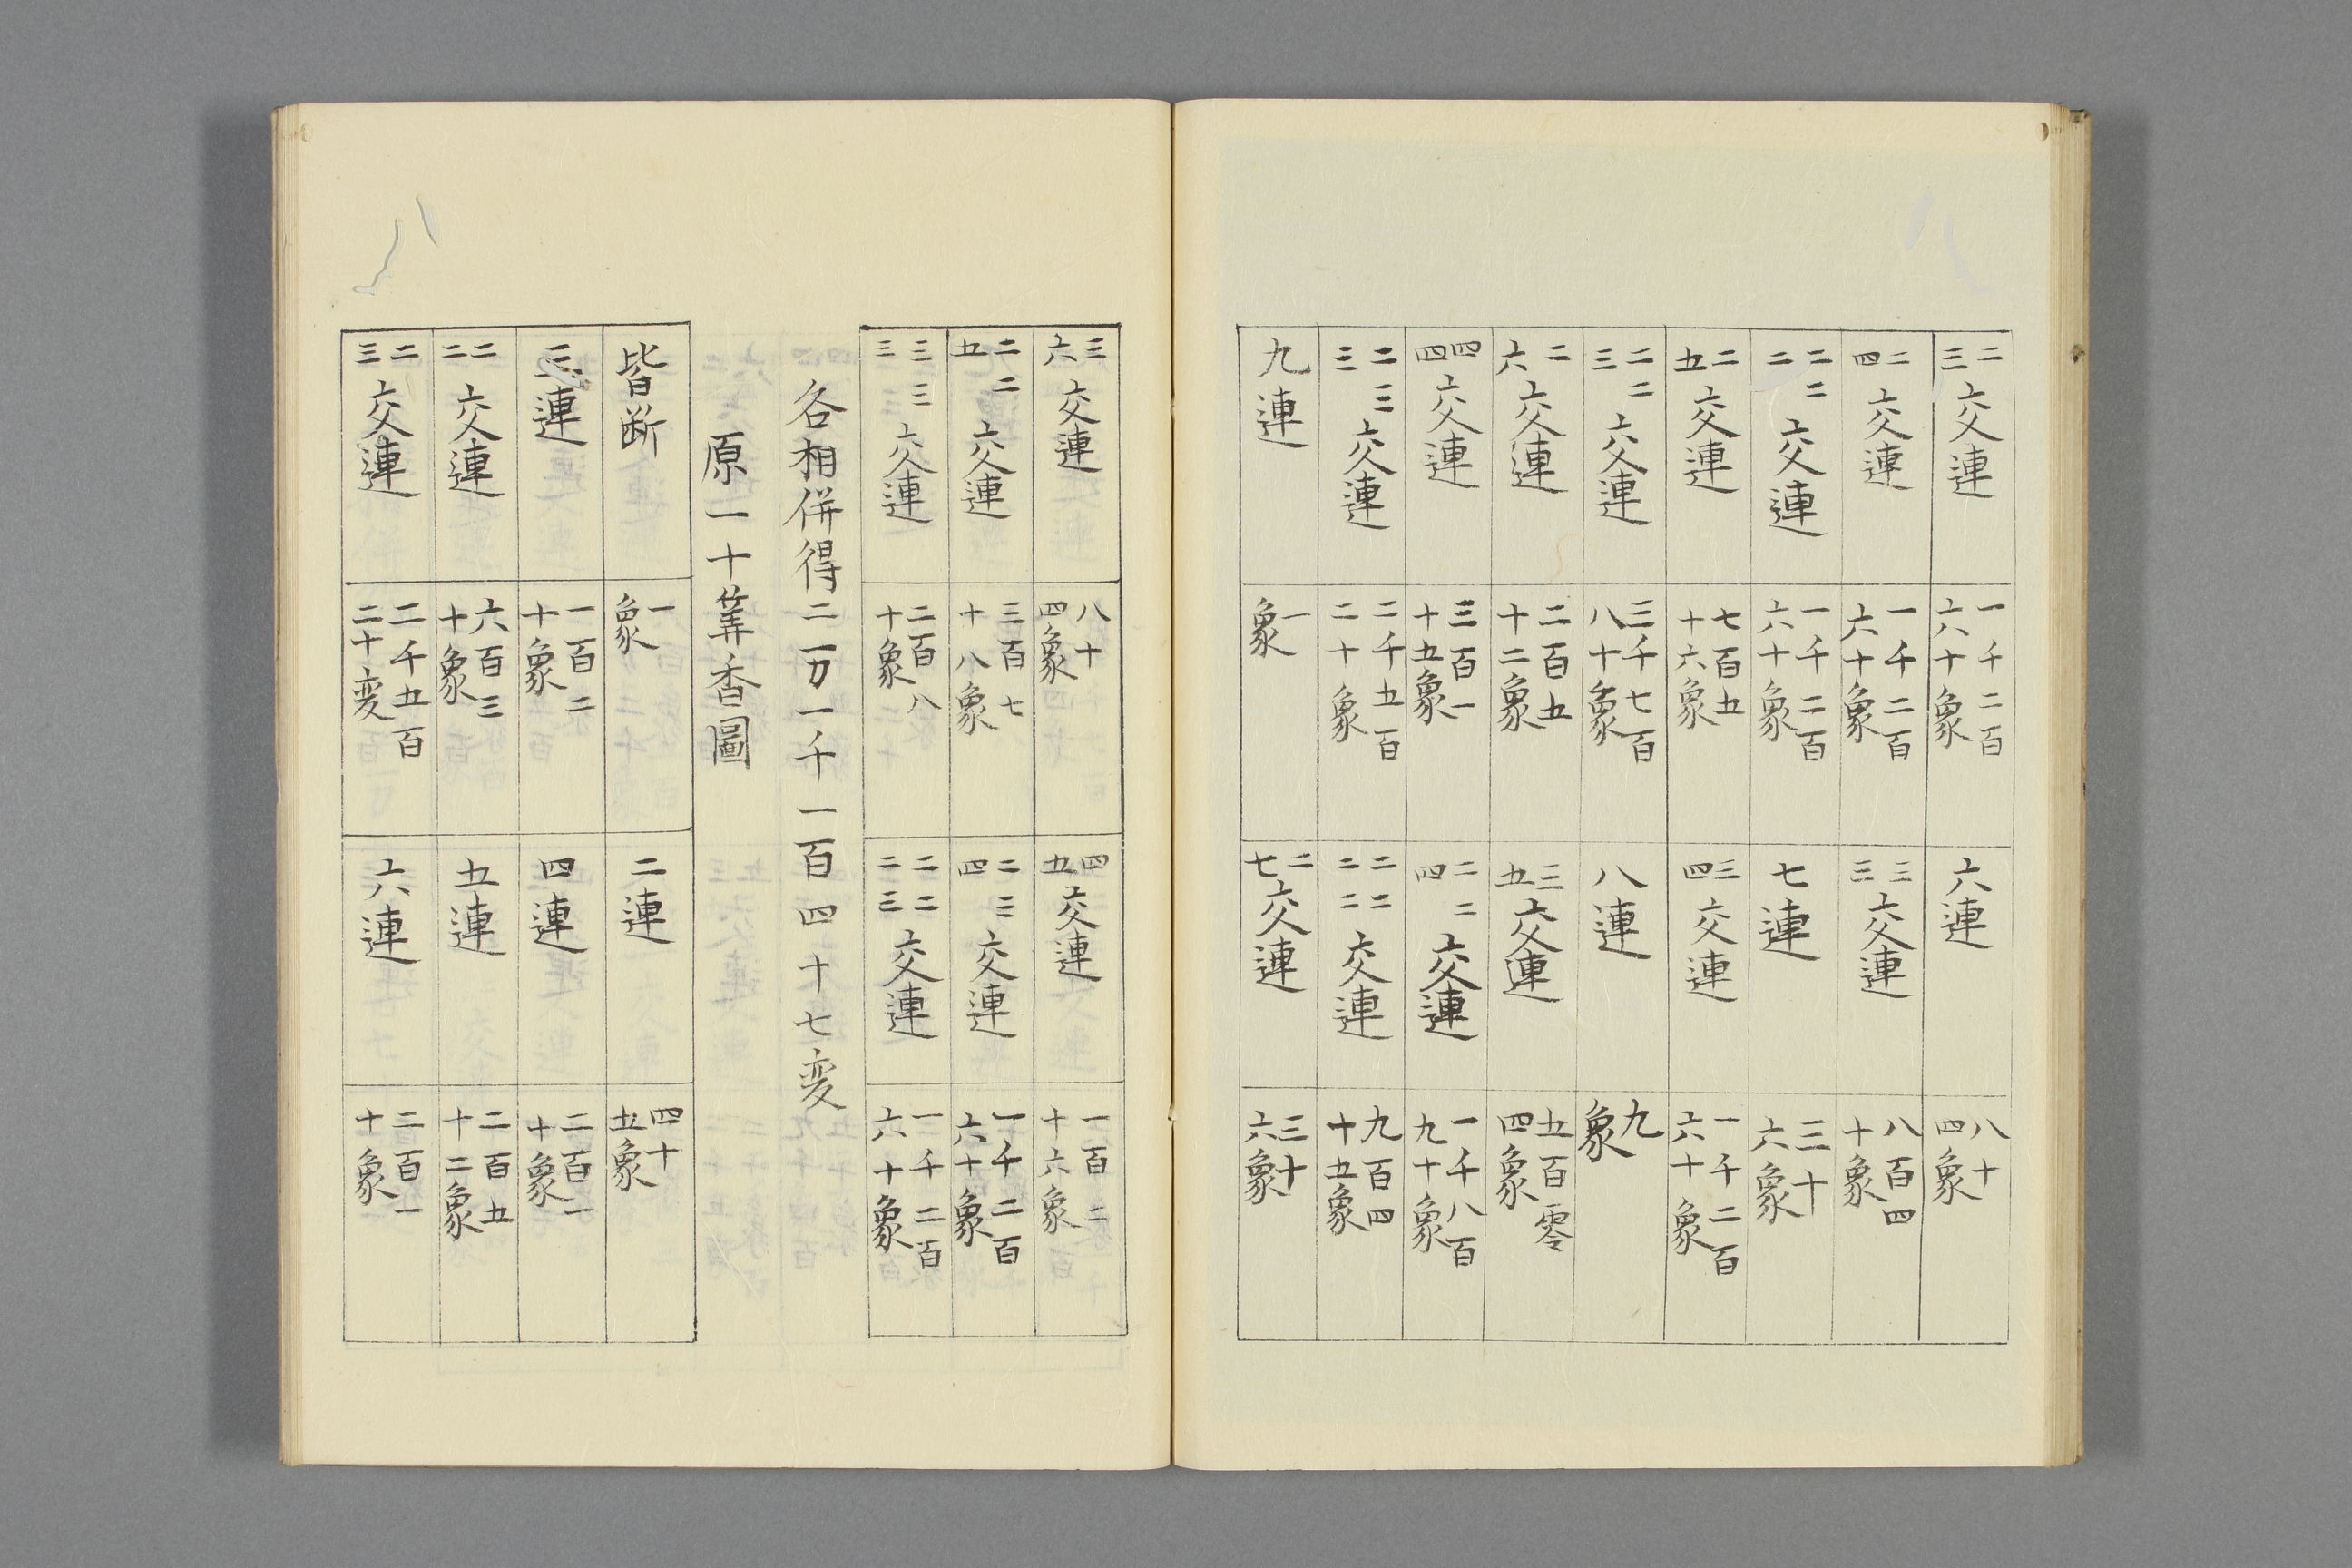 二三交連　一千二百六十象　六連　八十四象
二四交連　一千二百六十象　三三交連　八百四十象
二二二交連　一千二百六十象　七連　三十六象
二五交連　七百五十六象　三四交連　一千二百六十象
二二三交連　三千七百八十象　八連　九象
二六交連　二百五十二象　三五交連　五百零四象
四四交連　三百一十五象　二二四交連　一千八百九十象
二三三交連　二千五百二十象　二二二二交連　九百四十五象
九連　一象　二七交連　三十六象
三六交連　八十四象　四五交連　一百二十六象
二二五交連　三百七十八象　二三四交連　一千二百六十象
三三三交連　二百八十象　二二二三交連　一千二百六十象
各相併得二万一千一百四十七変
原一十筭香圖
皆断　一象　二連　四十五象
三連　一百二十象　四連　二百一十象
二二交連　六百三十象　五連　二百五十二象
二三交連　二千五百二十変　六連　二百一十象